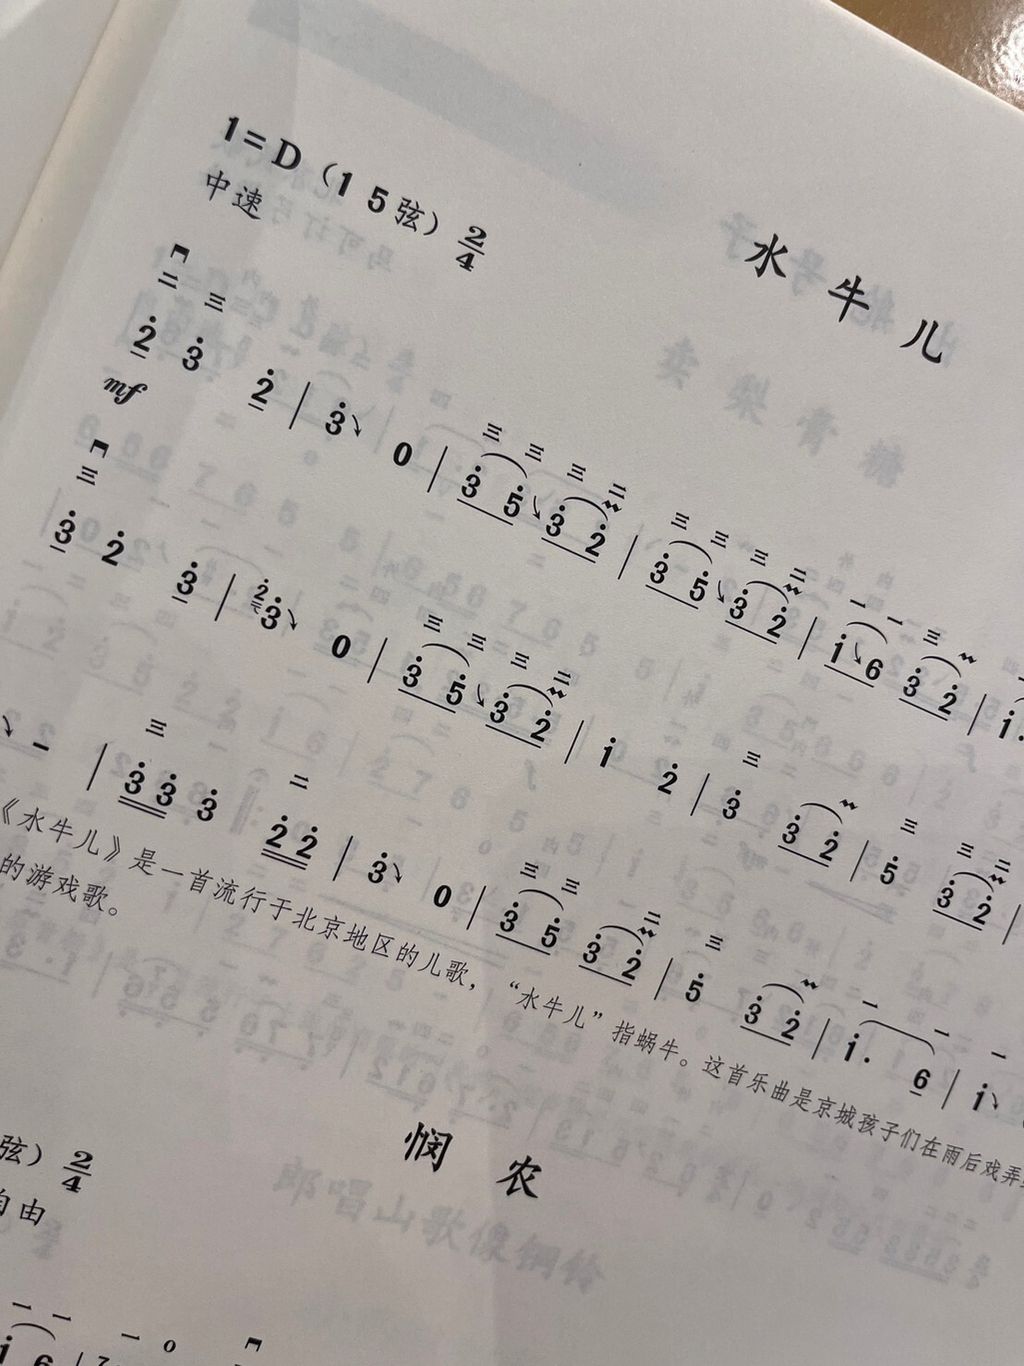 1=D（1 5弦）2/4
中速
水牛儿
二 三
2̇ 3̇ 2̇ | 3̇ 0 | 3̇ 5̇ 3̇ 2̇ | 3̇ 5̇ 3̇ 2̇ | 1̇ 6 3̇ 2̇ | 1̇.
mf
三
3̇ 2̇ 3̇ | 3̇ 0 | 3̇ 5̇ 3̇ 2̇ | 1̇ 2̇ | 3̇ 3̇ 2̇ | 5̇ 3̇ 2̇ |
- | 3̇ 3̇ 3̇ 2̇ 2̇ | 3̇ 0 | 3̇ 5̇ 3̇ 2̇ | 5̇ 3̇ 2̇ | 1̇. 6 | 1̇
《水牛儿》是一首流行于北京地区的儿歌，“水牛儿”指蜗牛。这首乐曲是京城孩子们在雨后戏弄
的游戏歌。
弦）2/4
自由
悯农
1̇ 6